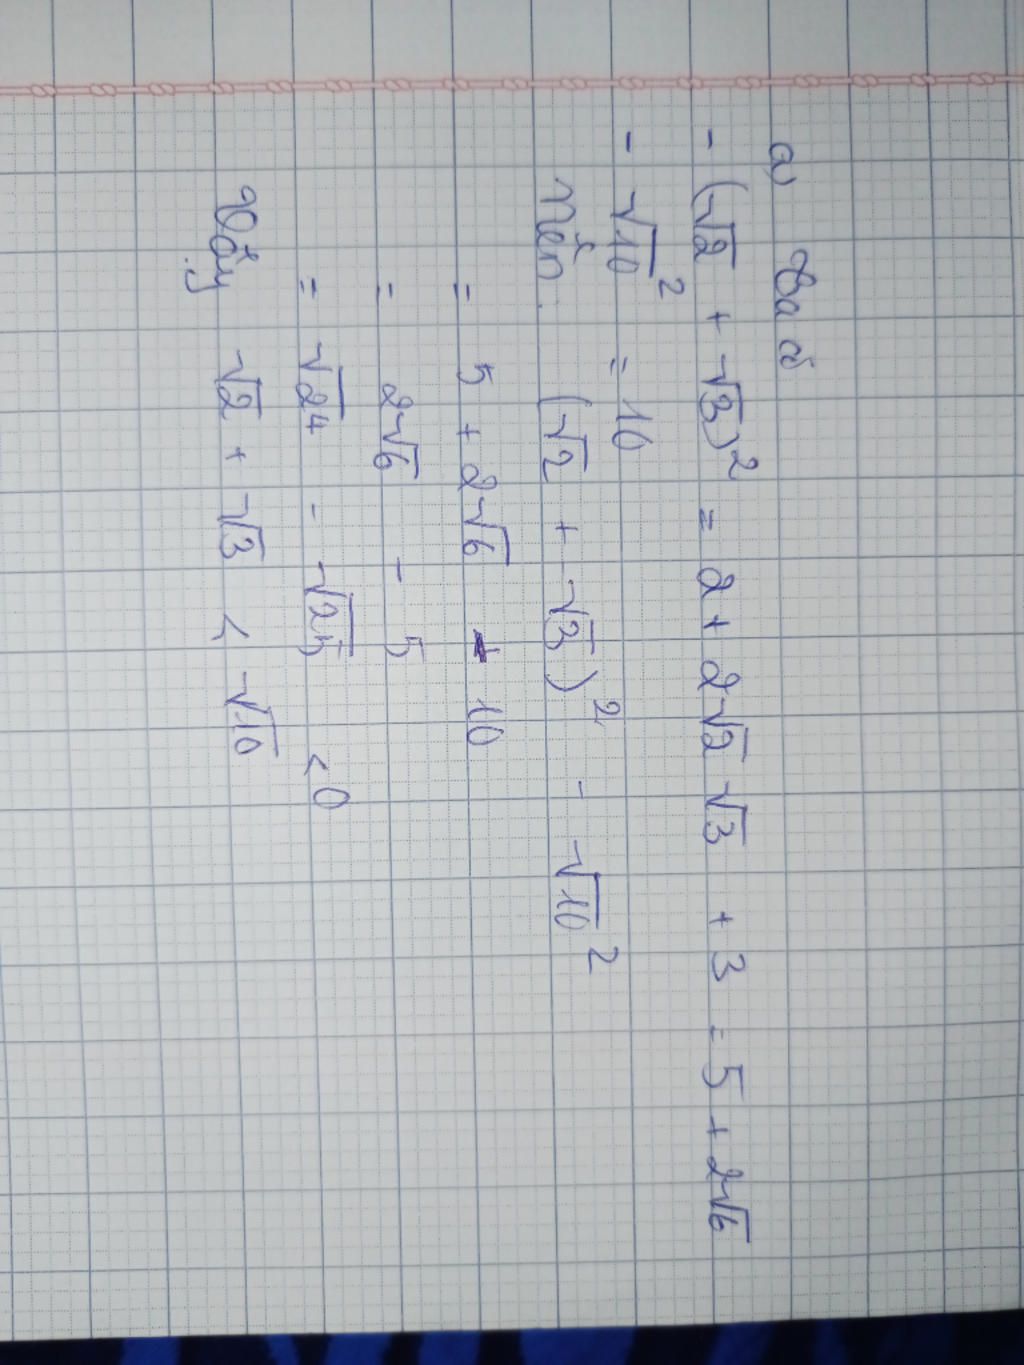 a) Ta có
- (√2 + √3)² = 2 + 2√2 √3 + 3 = 5 + 2√6
- √10² = 10
Nên: (√2 + √3)² - √10²
= 5 + 2√6 - 10
= 2√6 - 5
= √24 - √25 < 0
Vậy √2 + √3 < √10